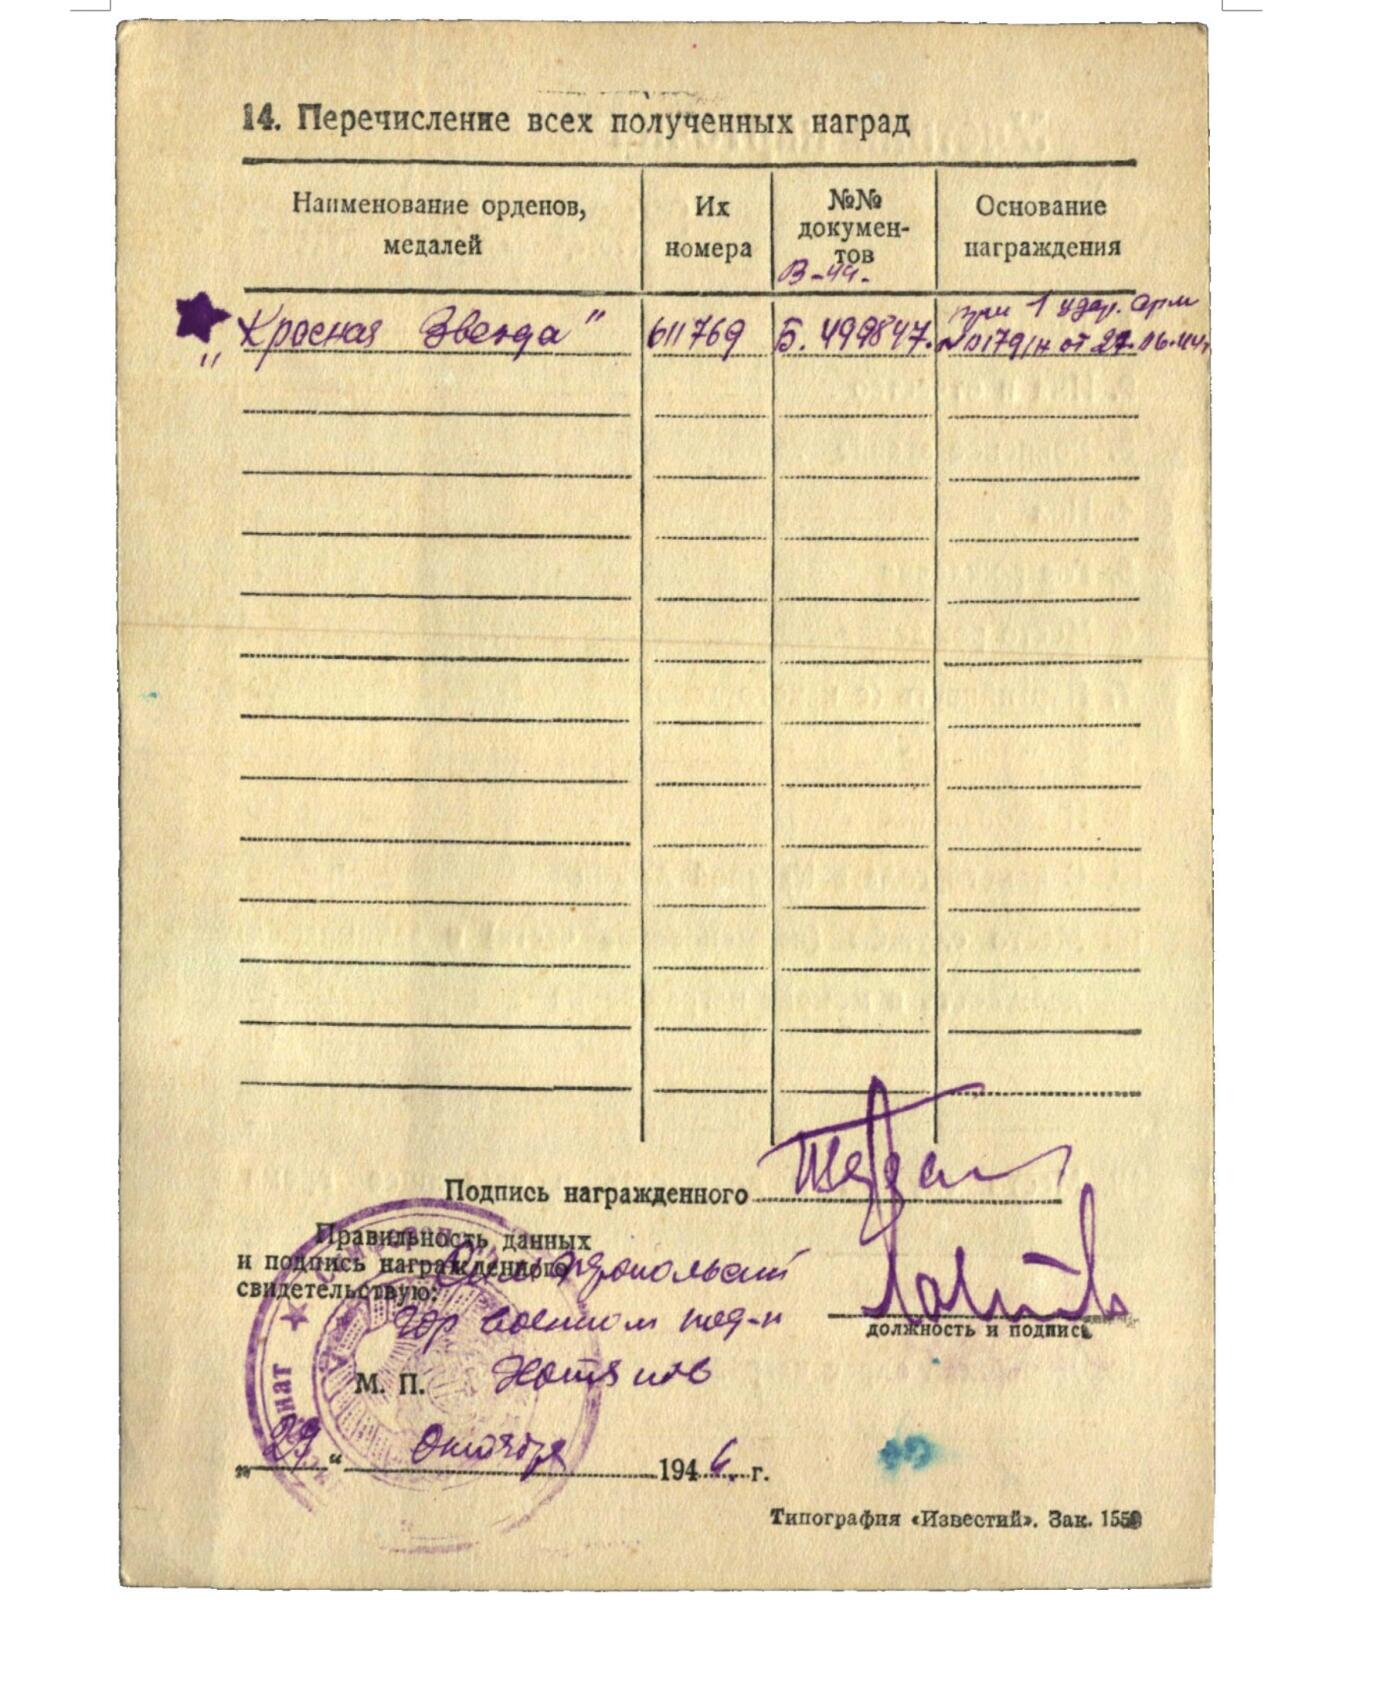 14. Перечисление всех полученных наград
Наименование орденов, медалей
Их номера
№№ документов
Основание награждения
В-44.
при 1 удар. арм
„Красная Звезда" 611769 Б. 499847. №0179/н от 27.06.44г
Подпись награжденного
Правильность данных
и подпись награжденного
свидетельствую:
Симферопольский
Гор военком
должность и подпись
М. П.
„29" Октября 1946. г.
Типография «Известий». Зак. 1559